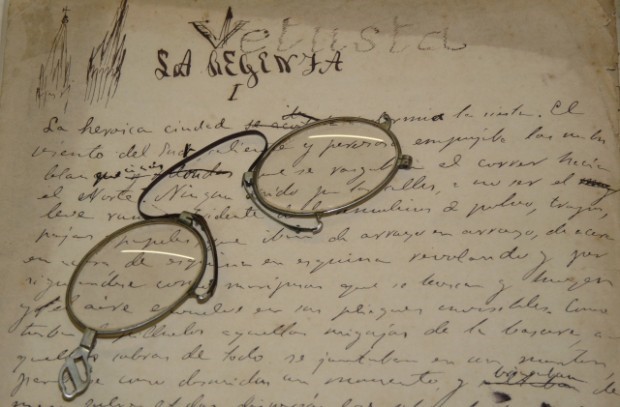 Vetusta
LA REGENTA
I
La heroica ciudad la siesta. El
viento del Sur caliente y perezoso empujaba las nubes
blanquecinas que se rasgaban al correr hacia
el Norte. Ningun ruido en calles, a no ser el
leve de remolinos de polvo, trapos,
pajas papeles que iban de arroyo en arroyo, de acera
en acera de esquina en esquina revolando y per
siguiendose como mariposas que se buscan y huyen
y el aire envuelve en sus pliegues invisibles. Como
turbas pilluelos aquellas migajas de la basura, a
quellas sobras de todo se juntaban en un monton,
como dormidas un momento, y